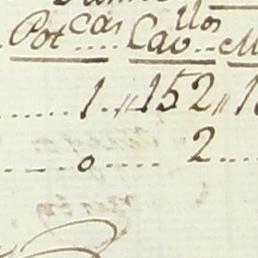 Pot.cas Cav.llos
1 „ 152 „ 1
0 2